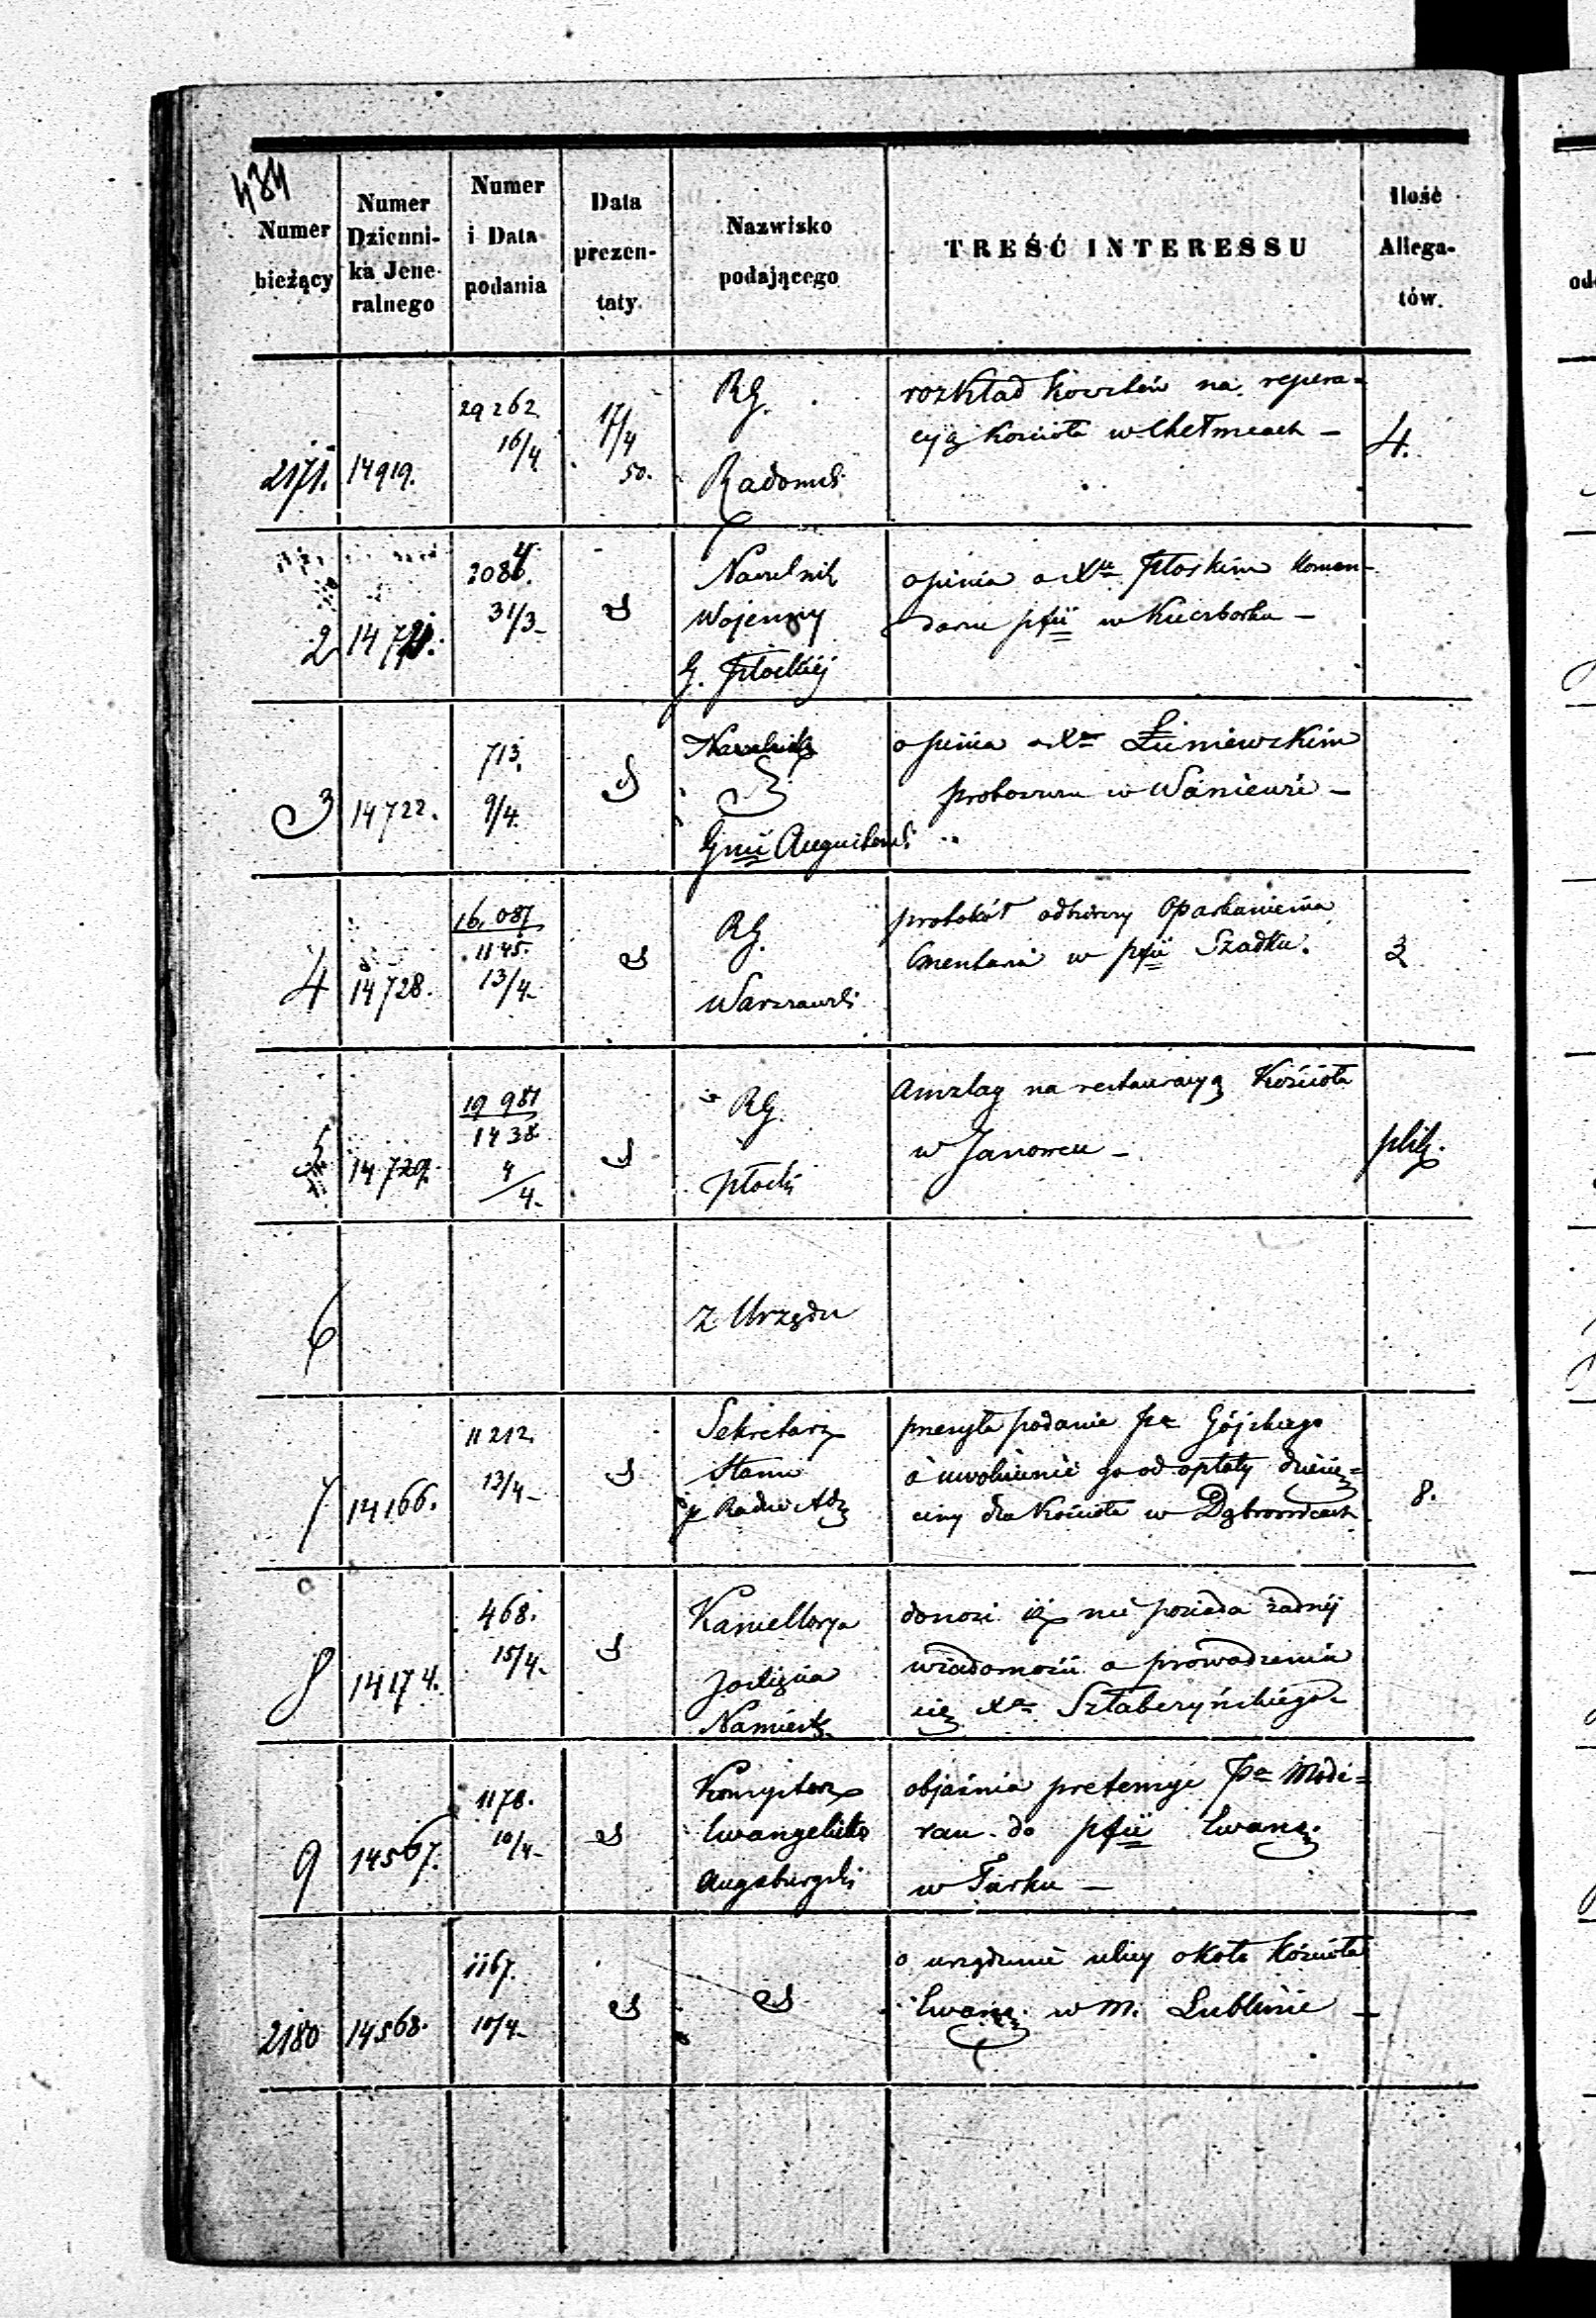 434
Numer bieżący
Numer Dzienni-ka Jene-ralnego
Numer i Data podania
Data prezen-taty.
Nazwisko podającego
TREŚĆ INTERESSU
Ilość Allega-tów.
2171. 14919. 29262 16/4 17/4 50. RG. Radomsk
rozkład kosztów na repera=
cyą kościoła w Chełmcach –
4.
2 2084. 31/3 Naczelnik
Wojenny
G. Płockiéj
opinia o Xdu Płoskim Komen-
darzu pfii w Kuczborku –
3 14722. 713. 9/4 Naczelnik
Gnii Augustows
opinia o Xdu
proboszczu w Wiśniewie –
4 14728. 16,087 1145. 13/4 RG.
Warszawski
protokół odbiorczy oparkanienia
Cmentarza w pfii Szadku.
3
5 14729. 19981 1438 4/4 RG.
Płocki
Anszlag na restauracyą Kościoła
w Janowcu –
plik.
6 z Urzędu
7 14166. 11212. 13/4 Sekretarz
Stanu
p Radzie Adz
przesyła podanie Pa Gójskiego
o uwolnienie go od opłaty dziesię=
ciny dla Kościoła w Dąbrowicach
8.
8 14174. 468. 15/4 Kancellarya
Namiest.
donosi iż nie posiada żadnéj
wiadomości o prowadzeniu
się Xa Sztabczyńskiego
9 14567. 1178. 10/4 Konsystorz
Ewangelicko
Augsburgski
objaśnia pretensye Pa
do pfii Ewang.
w Turku –
2180 14568. 1167. 10/4
o urządzenie ulicy około kościoła
Ewang. w m. Lublinie –